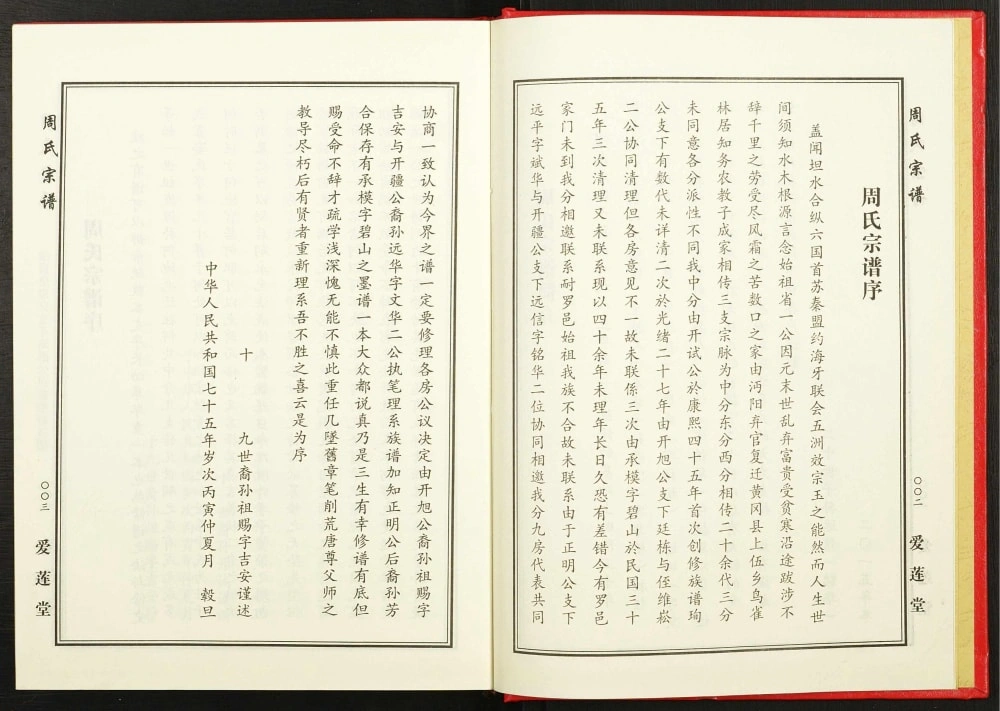 周氏宗谱
〇〇二
爱莲堂
周氏宗谱序
盖闻坦水合纵六国首苏秦盟约海牙联会五洲效宗玉之能然而人生世
间须知水木根源言念始祖省一公因元末世乱弃富贵受贫寒沿途跋涉不
辞千里之劳受尽风霜之苦数口之家由沔阳弃官复迁黄冈县上伍乡鸟雀
林居知务农教子成家相传三支宗脉为中分东分西分相传二十余代三分
未同意各分派性不同我中分由开试公於康熙四十五年首次创修族谱珣
公支下有数代未详清二次於光绪二十七年由开旭公支下廷栋与侄维崧
二公协同清理但各房意见不一故未联係三次由承模字碧山於民国三十
五年三次清理又未联系现以四十余年未理年长日久恐有差错今有罗邑
家门未到我分相邀联系耐罗邑始祖我族不合故未联系由于正明公支下
远平字斌华与开疆公支下远信字铭华二位协同相邀我分九房代表共同
协商一致认为今界之谱一定要修理各房公议决定由开旭公裔孙祖赐字
吉安与开疆公裔孙远华字文华二公执笔理系族谱加知正明公后裔孙芳
合保存有承模字碧山之墨谱一本大众都说真乃是三生有幸修谱有底但
赐受命不辞才疏学浅深愧无能不慎此重任几墜舊章笔削荒唐尊父师之
教导尽朽后有贤者重新理系吾不胜之喜云是为序
十九世裔孙祖赐字吉安谨述
中华人民共和国七十五年岁次丙寅仲夏月 毂旦
周氏宗谱
〇〇三
爱莲堂